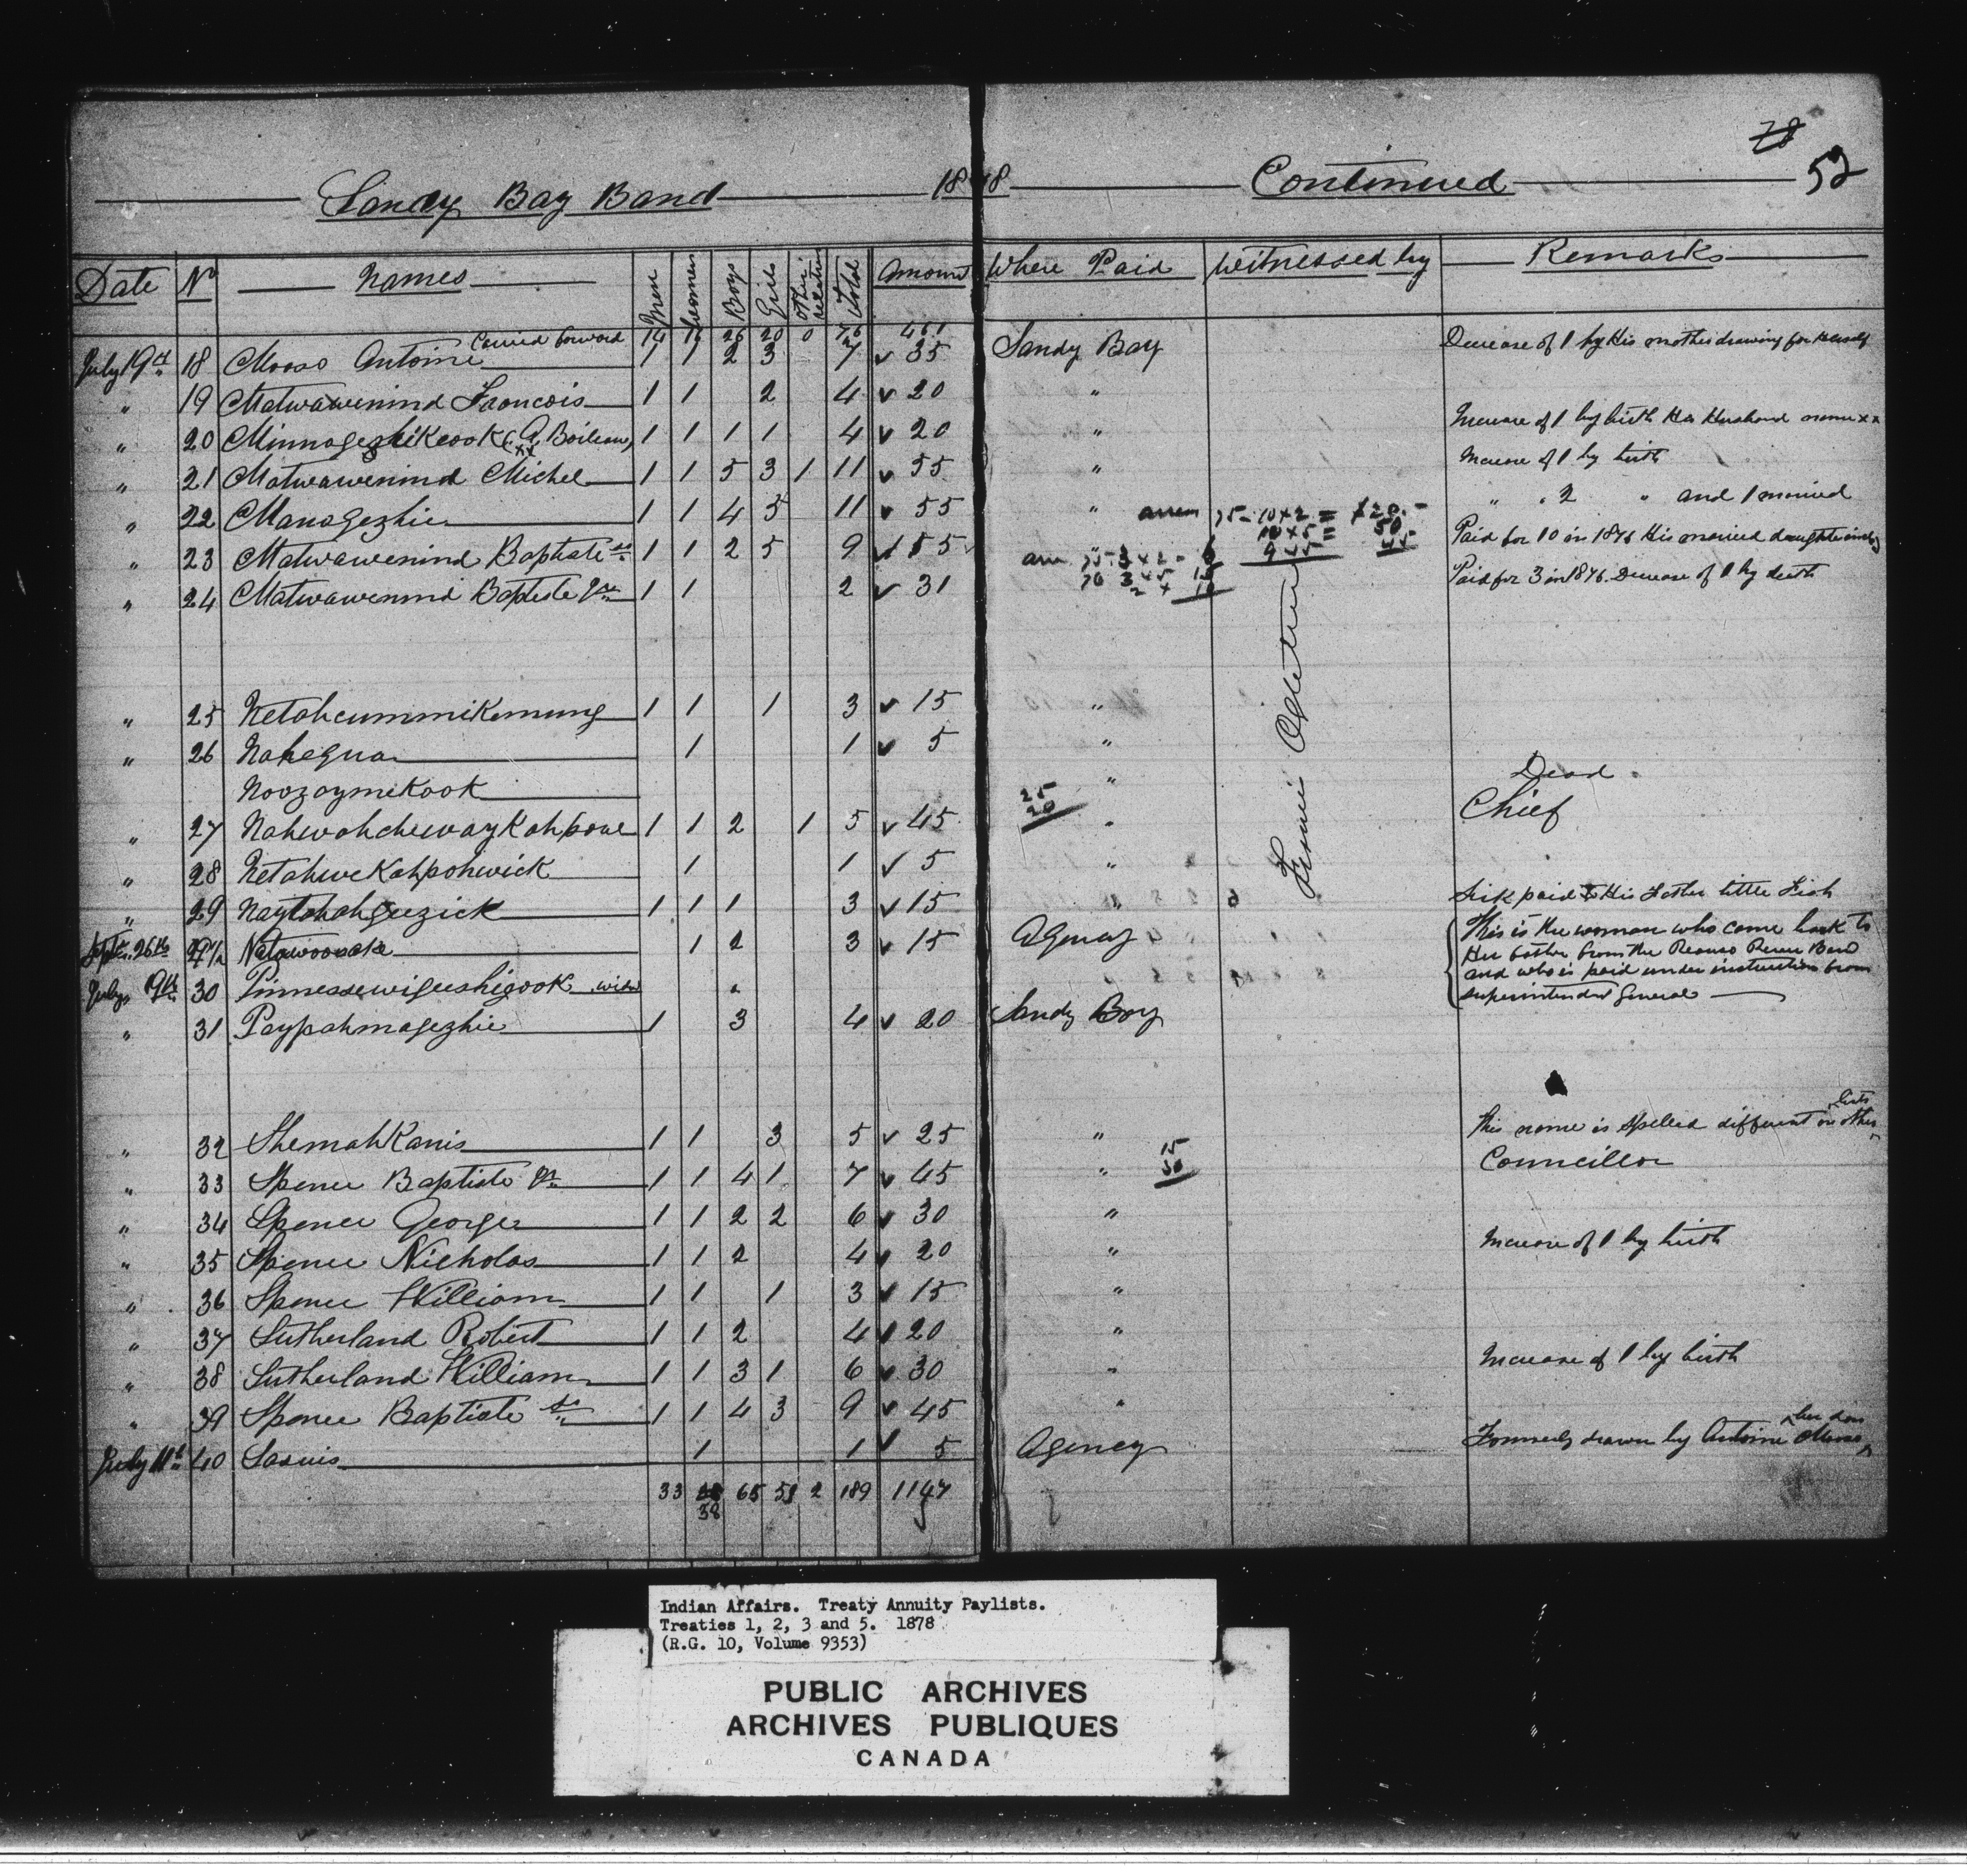 78
52
Sandy Bay Band 1878 Continued
Date No Names Men Women Boys Girls Other relatives Total Amount Where Paid Witnessed by Remarks
Carried forward 14 16 26 20 0 76 461
July 19th 18 Mooso Antoine 1 1 2 3 7 35 Sandy Bay Decrease of 1 by His mother drawing for herself
" 19 Matwawenind Francois 1 1 2 4 20 "
" 20 Minnogezhikcook (A. Boileau) xx 1 1 1 1 4 20 " Increase of 1 by birth Her Husband name xx
" 21 Matwawenind Michel 1 1 5 3 1 11 55 " Increase of 1 by birth
" 22 Manogezhic 1 1 4 5 11 55 " " " 2 " and 1 married
" 23 Matwawenind Baptiste Sr 1 1 2 5 9 Paid for 10 in 1876 His married daughter
arrears 75- 10x2 = $20.-
10x5 = 50
9x5 45
" 24 Matwawenind Baptiste Jr 1 1 2 31 Paid for 3 in 1876. Decrease of 1 by death
arr 75- 3x2 - 6
76 3x5 15
2x 10
" 25 Netahcummikemung 1 1 1 3 15 "
" 26 Nahequa 1 1 5 "
Noozaymikook " Dead
" 27 Nahwahchewaykahpow 1 1 2 1 5 45 25 20 " Chief
" 28 Netahwekahpohwick 1 1 5 "
" 29 Naytahahgeezick 1 1 1 3 15 " Sick paid to His Father Little Fish
Septr. 26th 29½ Natawoosaka 1 2 3 15 Agency This is the woman who came back to
Her father from the Roseau River Band
and who is paid under instruction from
Superintendent General
July 19th 30 Pinnessewigeeshigook wid
" 31 Paypahmagezhic 1 3 4 20 Sandy Bay
" 32 ShemahKanis 1 1 3 5 25 " This name is spelled different on other lists
" 33 Spence Baptiste Jr 1 1 4 1 7 45 " 15 30 Councillor
" 34 Spence George 1 1 2 2 6 30 "
" 35 Spence Nicholas 1 1 2 4 20 " Increase of 1 by birth
" 36 Spence William 1 1 1 3 15 "
" 37 Sutherland Robert 1 1 2 4 20 "
" 38 Sutherland William 1 1 3 1 6 30 " Increase of 1 by birth
" 39 Spence Baptiste Sr 1 1 4 3 9 45 "
July 11th 40 Sasuis 1 1 5 Agency Formerly drawn by Antoine Mooso her son
33 38 65 51 2 189 1147
Indian Affairs. Treaty Annuity Paylists.
Treaties 1, 2, 3 and 5. 1878
(R.G. 10, Volume 9353)
PUBLIC ARCHIVES
ARCHIVES PUBLIQUES
CANADA